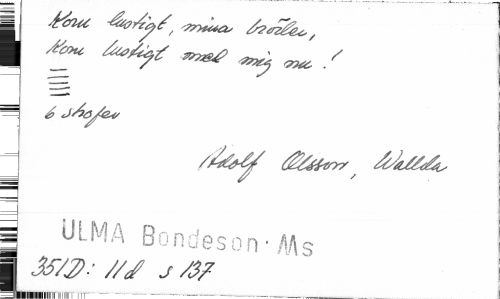 Kom lustigt, mina bröder,
Kom lustigt med mig nu!
6 strofer
Adolf Olsson, Wallda
ULMA Bondeson·Ms
351D: 11d s 137